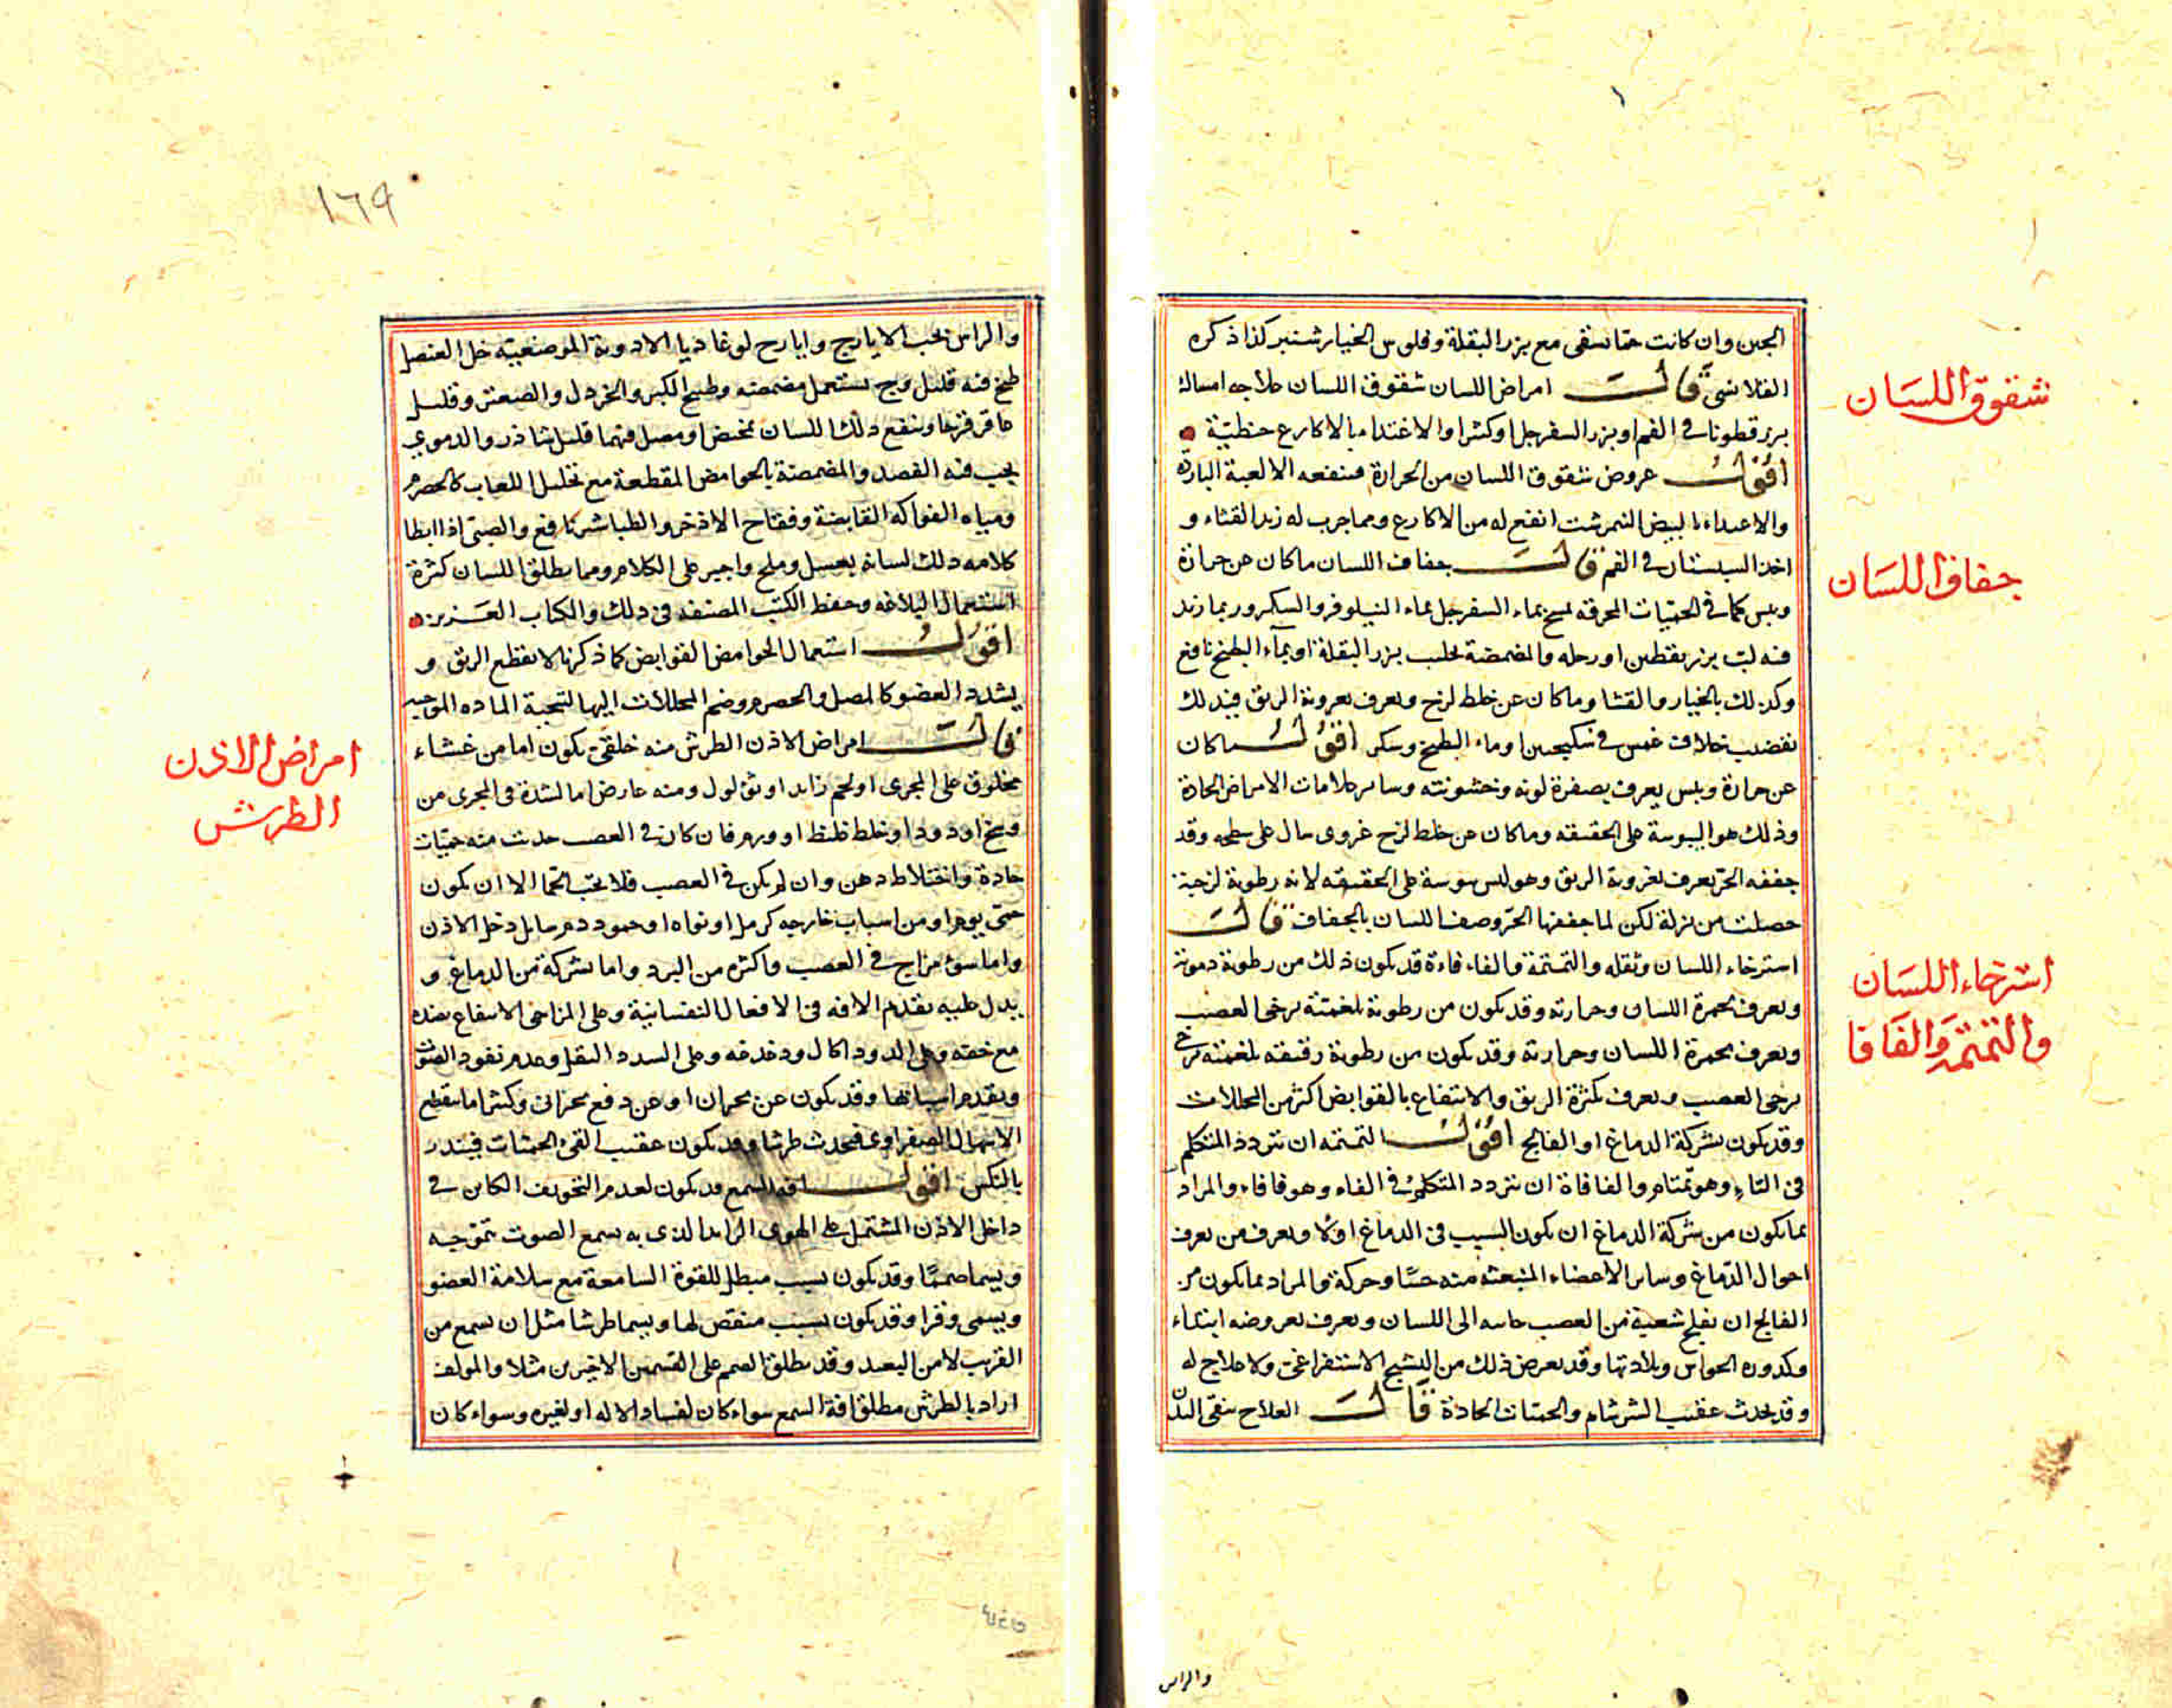 الجبن وان كانت حمّا سقى مع بزر البقلة وفلوس الخيار شنبر كذا ذكره
القلانسى قالت امراض اللسان شقوق اللسان علاجه امساك
بزر قطونا فى الفم او بزر السفرجل او كثيرا والاغتدا بالاكارع حنطيّة
اقول عروض شقوق اللسان من الحرارة فتنفعه الالعبة الباردة
والاغتداء بالبيض النمرشت انفع له من الاكارع ومما جرب له زبد القثاء و
اخذ السبستان فى الفم قالت جفاف اللسان ما كان عن حرارة
ويبس كما فى الحميّات المحرقة يمسح بماء السفرجل بماء النيلوفر والسكر وربما زيد
فيه لب بزر يقطين او رجله والمضمضة بحليب بزر البقلة او بماء البطيخ نافع
وكذلك بالخيار والقثا وما كان عن خلط لزج ويعرف بغروية الريق فيدلك
بقضيب خلاف غمس فى سكنجبين او ماء البطيخ وسكر اقول ما كان
عن حرارة ويبس يعرف بصفرة لونه وخشونته وساير علامات الامراض الحادة
وذلك هو اليبوسة على الحقيقه وما كان عن خلط لزج غروى سال على سطحه وقد
جففه الحرّ يعرف بغروية الريق وهو ليس يبوسة على الحقيقه لانه رطوبة لزجة
حصلت من نزلة لكن لما جففها الحرّ وصف اللسان بالجفاف قالت
استرخاء اللسان وثقله والتمتمة والفاءفاءة قد يكون ذلك من رطوبة دموية
ويعرف بحمرة اللسان وحرارته وقد يكون من رطوبة بلغمية يرخى العصب
ويعرف بحمرة اللسان وحرارته وقد يكون من رطوبة رقيقه بلغمية
يرخى العصب ويعرف بكثرة الريق والانتفاع بالقوابض اكثر من المحللات
وقد يكون بشركة الدماغ او الفالج اقول التمتمه ان يتردد المتكلم
فى التاء وهو تمتام والفافاة ان يتردد المتكلم فى الفاء وهو فافاء والمراد
بما يكون من شركة الدماغ ان يكون السبب فى الدماغ اولا ويعرف من تعرف
احوال الدماغ وساير الاعضاء المنبعثه منه حسّا وحركة والمراد بما يكون من
الفالج ان يفلج شعبة من العصب جاىه الى اللسان ويعرف بعروضه ابتداء
وكدوره الحواس وبلادتها وقد يعرض ذلك من التشنج الاستفراغى ولا علاج له
وقد يحدث عقيب السرسام والحميات الحادة قالت العلاج ينقى البدن
شقوق اللسَان
جفاف اللسَان
استرخاء اللسَان
والتمتمة والفَافا
والراس
١٦٩
والراس بحب الايارج وايارج لوغاديا الادوية الموضعية خل العنصل
طبخ فيه قليل وج يستعمل مضمضة وطبيخ الكبر والخردل والصعتر وقليل
عاقرقرحا وينفع دلك اللسان بمخيض او مصل فيهما قليل نشاذر والدموي
يجب فيه الفصد والمضمضة بالحوامض المقطعة مع تحليل اللعاب كالحصرم
ومياه الفواكه القابضة وفقاح الاذخر والطباشير نافع والصبى اذا ابطا
كلامه دلك لسانه بعسل وملح واجبر على الكلام ومما يطلق اللسان كثرة
استعمال البلاغه وحفظ الكتب المصنفه فى ذلك والكتاب العزيز
اقول استعمال الحوامض القوابض كما ذكرنا لا يقطع الريق و
يشدد العضو كالمصل والحصرم وضم المحللات اليها لتحبة الماده الموجبه
قالت امراض الاذن الطرش منه خلقى يكون اما من غشاء
مخلوق على المجرى او لحم زايد او ثؤلول ومنه عارض اما لسّدة فى المجرى من
وسخ او دود او خلط غليظ او ورم فان كان فى العصب حدث منه حميّات
حادة واختلاط ذهن وان لم يكن فى العصب فلا تجب الحما الا ان يكون
حمى يوم او من اسباب خارجه كرمل او نواه او جمود دم سايل دخل الاذن
واما سوء مزاج فى العصب واكثره من البرد واما بشركة من الدماغ و
يدل عليه تقدم الافه فى الافعال النفسانية وعلى المزاجى الانتفاع بضده
مع خفه وعلى الدود اكال ودغدغه وعلى السدد الثقل وعدم نفود الصوت
وتقدم اسبابها وقد يكون عن بحران او عن دفع بحرانى وكثيرا ما ينقطع
الاسهال الصفراوى فيحدث طرشا وقد يكون عقيب القى الحميات فينذر
بالنكس اقول افه السمع قد يكون لعدم التجويف الكاين فى
داخل الاذن المشتمل على الهوى الراكد الذى به يسمع الصوت بتموجه
ويسما صمما وقد يكون بسبب مبطل للقوة السامعة مع سلامة العضو
ويسمى وقرا وقد يكون بسبب منقص لها ويسما طرشا مثل ان يسمع من
القريب لا من البعيد وقد يطلق الصمم على القسمين الاخيرين مثلا والمولف
اراد بالطرش مطلق افة السمع سواء كان لفساد الاله او لغيره وسواء كان
امراض الاذن
الطرش